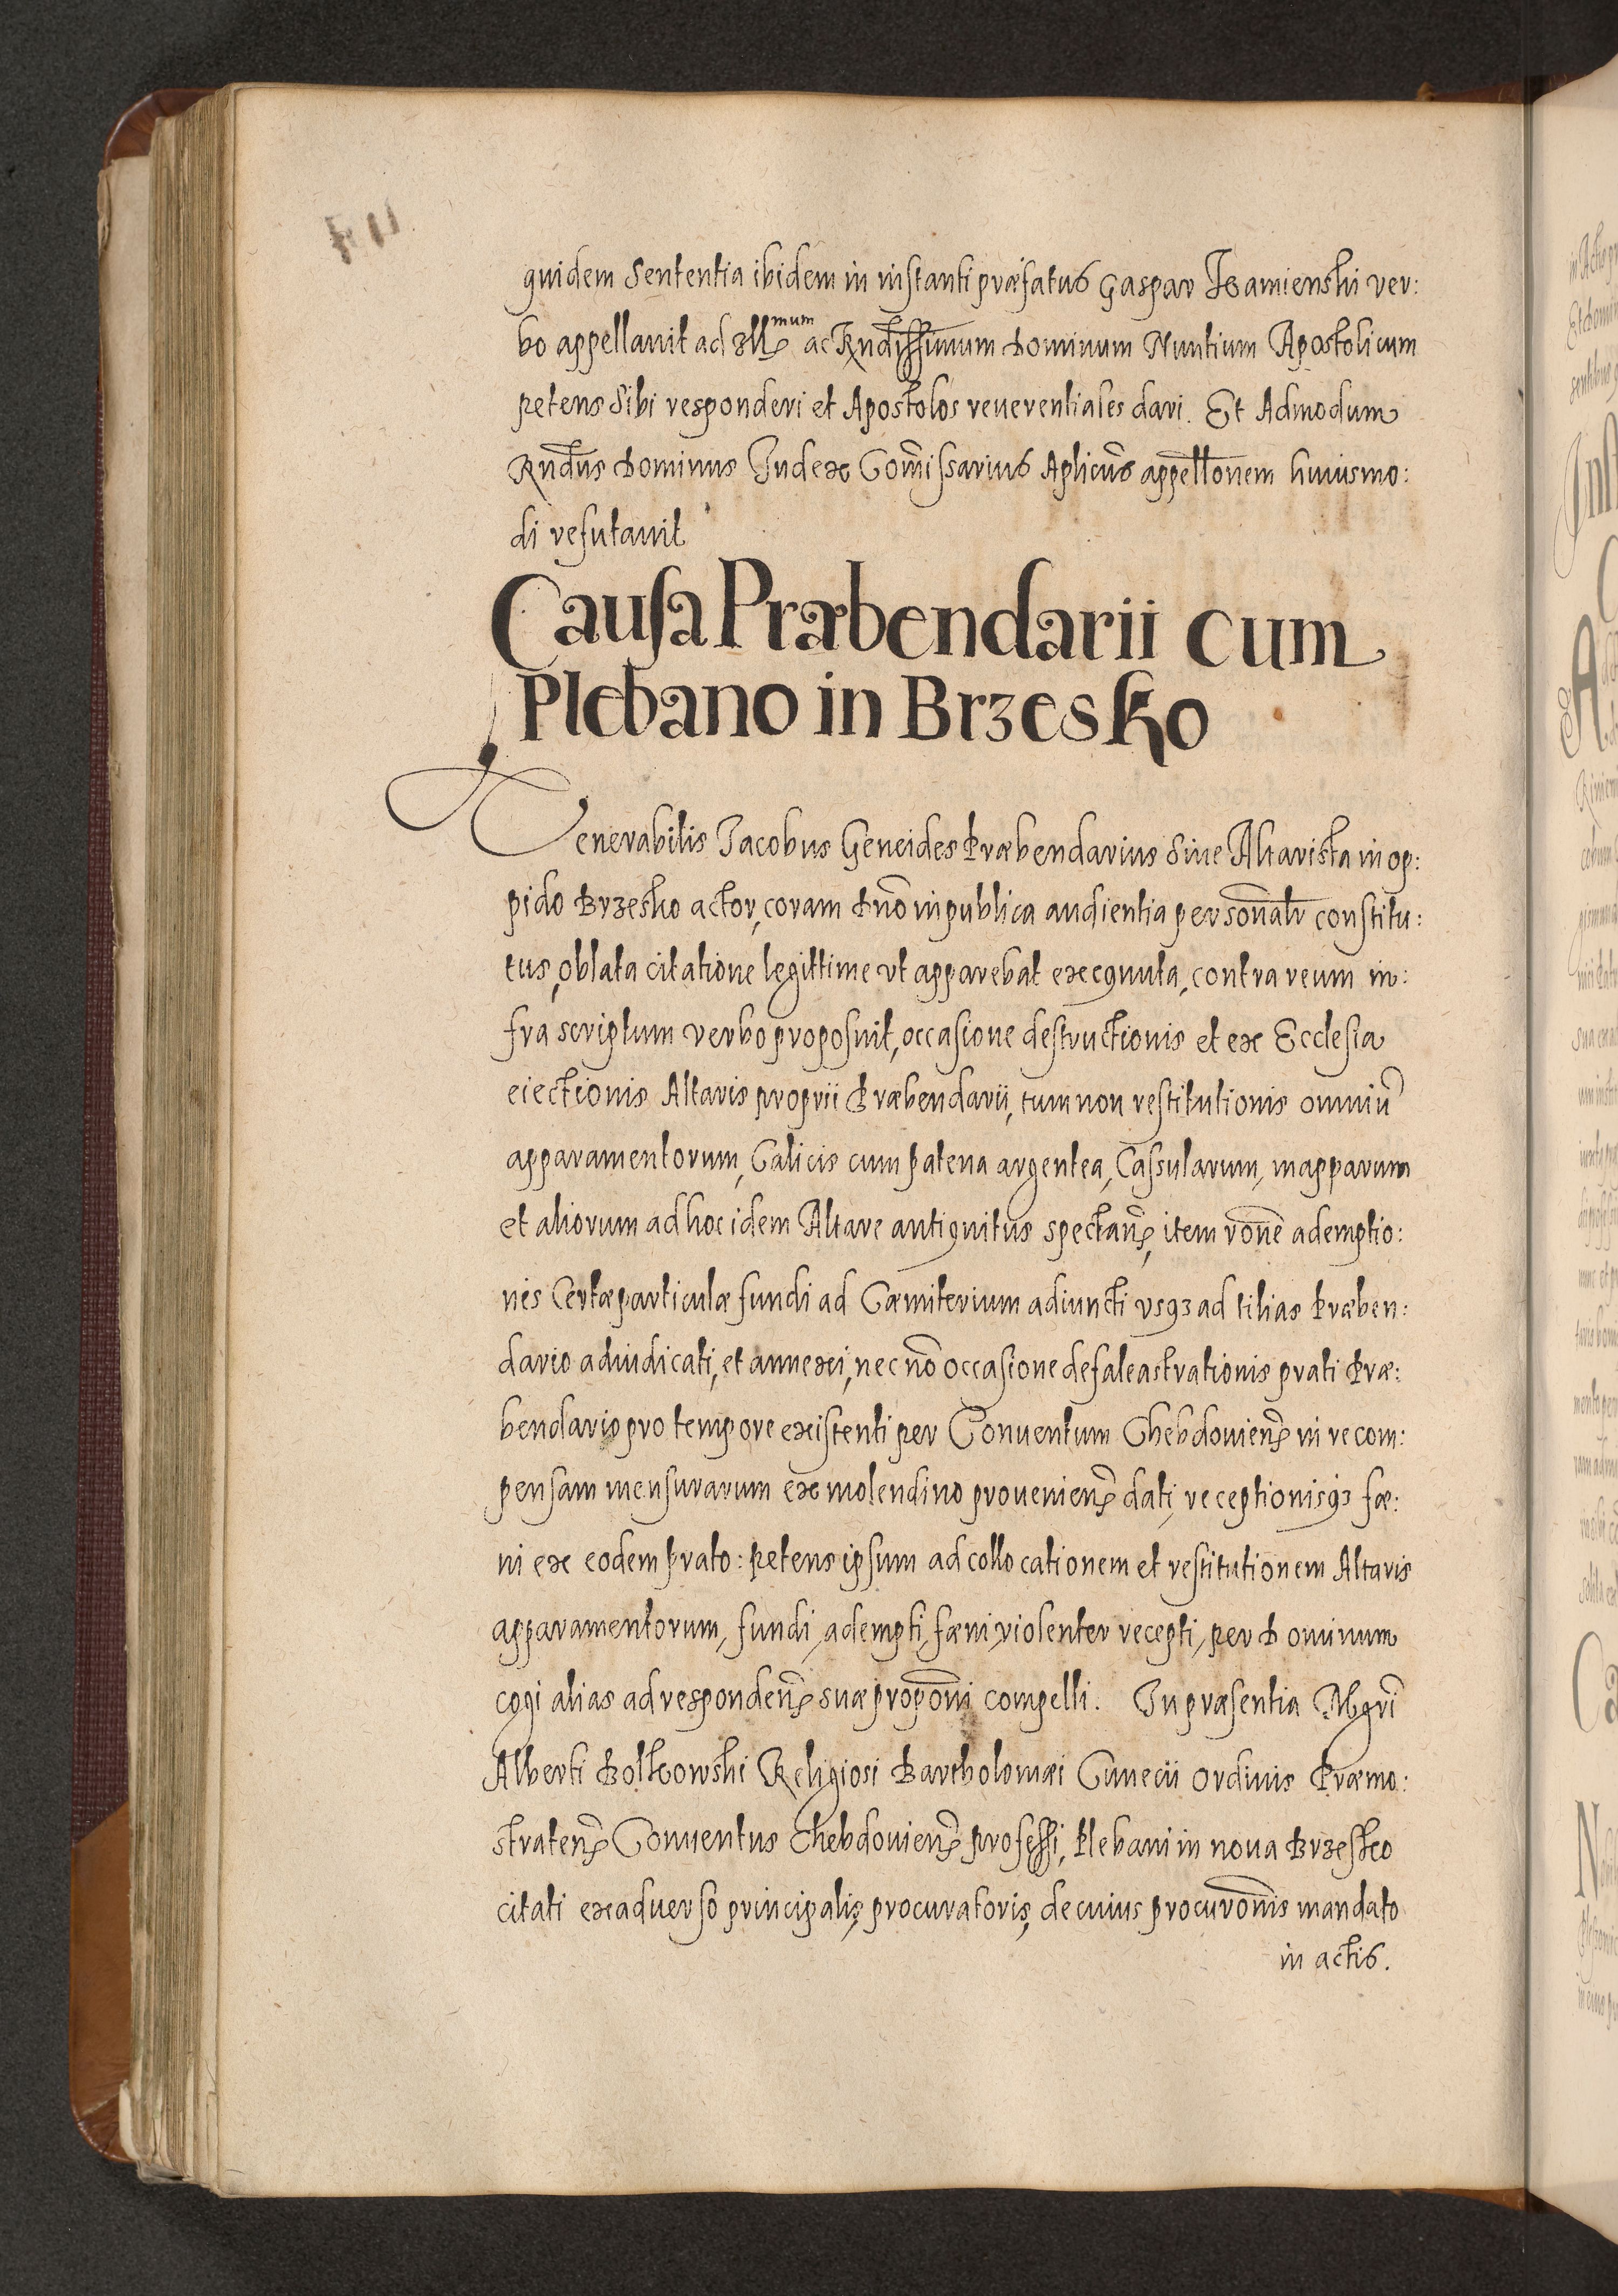 quidem Sententia ibidem in instanti præfatus Gaspar Kamienski ver:
bo appellauit ad Ill^mum ac Rndissimum Dominum Nuntium Apostolicum
petens sibi responderi et Apostolos reuerentiales dari. Et Admodum
Rndus Dominus Judex Comissarius Aplicus appellonem huiusmo:
di refutauit
Causa Præbendarii cum
Plebano in Brzesko
Venerabilis Jacobus Præbendarius siue Altarista in op:
pido Brzesko actor, coram Dno in publica audientia personalr constitu:
tus, oblata citatione legittime vt apparebat exequuta, contra reum in:
fra scriptum verbo proposuit, occasione destructionis et ex Ecclesia
eiectionis Altaris proprii Præbendarii, tum non restitutionis omniu
apparamentorum, Calicis cum patena argentea, Cassularum, mapparum
et aliorum ad hoc idem Altare antiquitus spectan, item rone ademptio:
nis Certæ particulæ fundi ad Cæmiterium adiuncti vsq3 ad tilias Præben:
dario adiudicati, et annexi, nec no occasione defalcastrationis prati Præ:
bendario pro tempore existenti per Conuentum Chebdouien in recom:
pensam mensurarum ex molendino prouenien dati, receptionisq3 fæ:
ni ex eodem prato: petens ipsum ad collocationem et restitutionem Altaris
apparamentorum, fundi, adempti, fæni violenter recepti, per Dominum
cogi alias ad responden suæ proponi compelli. In præsentia Mgri
Alberti Bolkowski Religiosi Bartholomæi Ordinis Præmo:
straten Conuentus Chebdouien professi, Plebani in noua Brzesko
citati ex aduerso principalis, procuratoris, de cuius procuronis mandato
in actis.